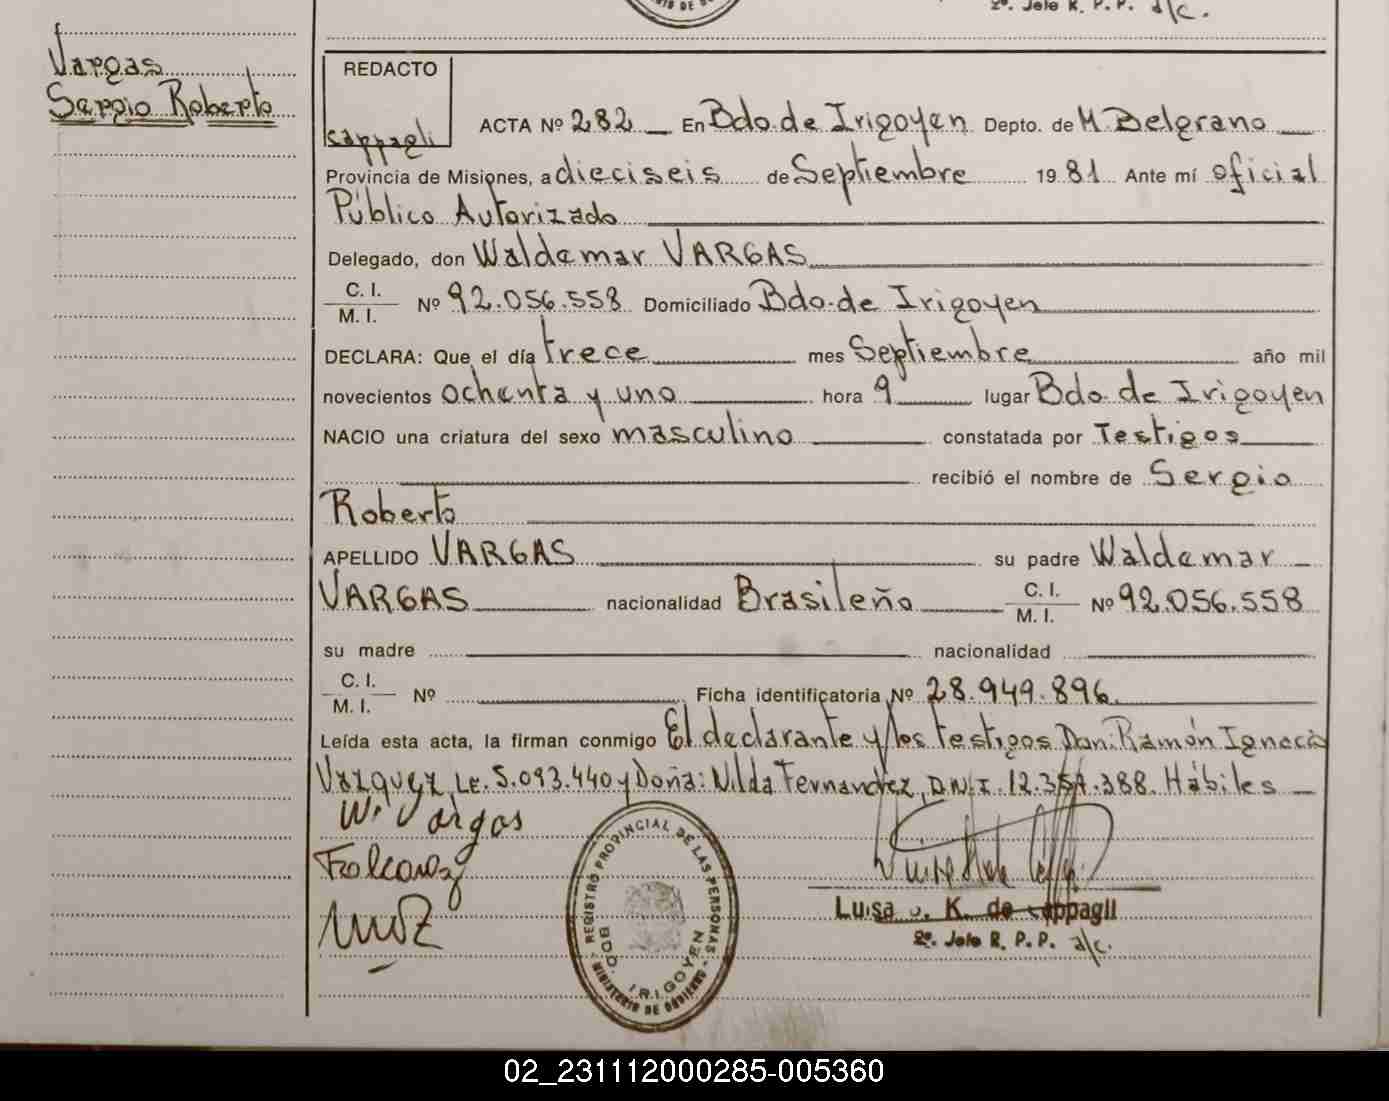 2º. Jefe R. P. P. a/c.
Vargas
Sergio Roberto
REDACTO
Cappagli
ACTA Nº 282 En Bdo de Irigoyen Depto. de M. Belgrano
Provincia de Misiones, a dieciseis de Septiembre 1981 Ante mí oficial
Público Autorizado
Delegado, don Waldemar VARGAS
C. I.
M. I. Nº 92.056.558 Domiciliado Bdo. de Irigoyen
DECLARA: Que el día trece mes Septiembre año mil
novecientos ochenta y uno hora 9 lugar Bdo. de Irigoyen
NACIO una criatura del sexo masculino constatada por Testigos
recibió el nombre de Sergio
Roberto
APELLIDO VARGAS su padre Waldemar
VARGAS nacionalidad Brasileño C. I. M. I. Nº 92.056.558
su madre nacionalidad
C. I.
M. I. Nº Ficha identificatoria Nº 28.949.896.
Leída esta acta, la firman conmigo El declarante y los testigos Don: Ramón Ignacio
Vazquez, L.E. 5.093.440 y Doña: Nilda Fernandez, D.N.I. 12.357.388. Hábiles
W. Vargas
REGISTRO PROVINCIAL DE LAS PERSONAS
BDO. IRIGOYEN
MINISTERIO DE GOBIERNO
Luisa K. de Cappagli
2º. Jefe R. P. P. a/c.
02_231112000285-005360